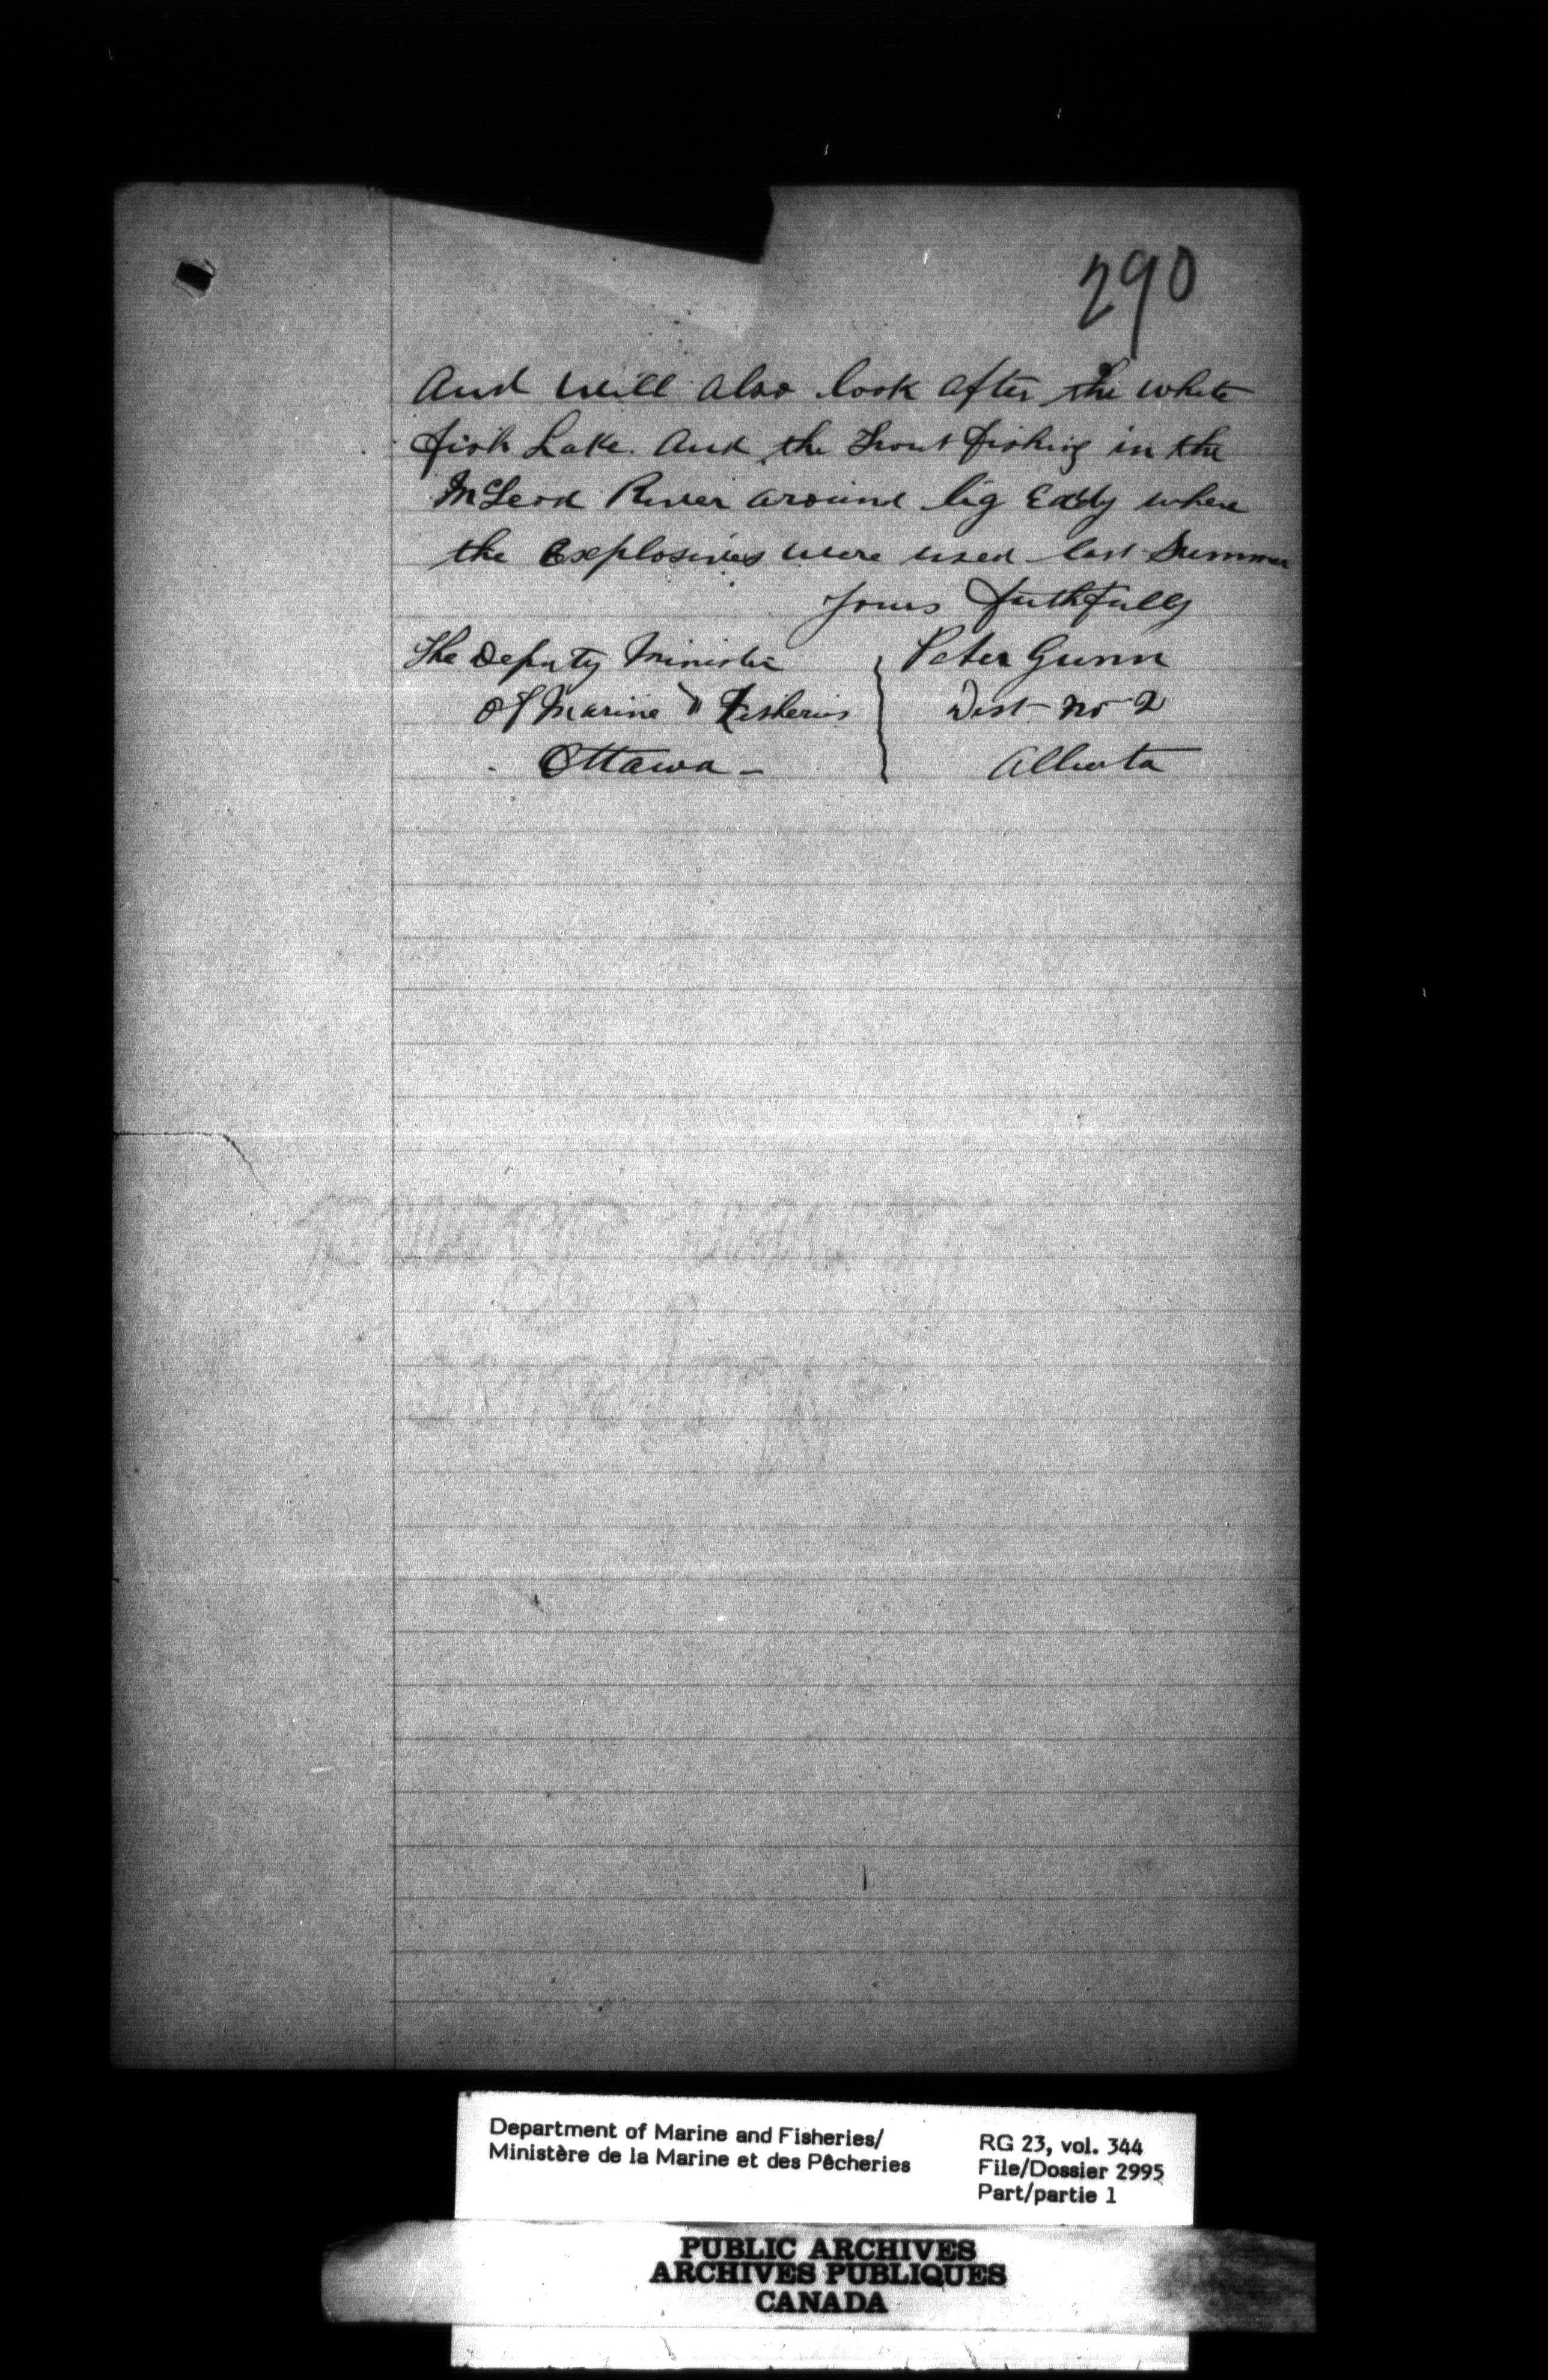 290
And will also look after the white
fish Lake. And the Trout fishing in the
McLeod River around big Eddy where
the Explosives were used last Summer
Yours faithfully
The Deputy Minister
Of Marine " Fisheries
Ottawa -
Peter Gunn
Dist No 2
Alberta
Department of Marine and Fisheries/
Ministère de la Marine et des Pêcheries
RG 23, vol. 344
File/Dossier 2995
Part/partie 1
PUBLIC ARCHIVES
ARCHIVES PUBLIQUES
CANADA